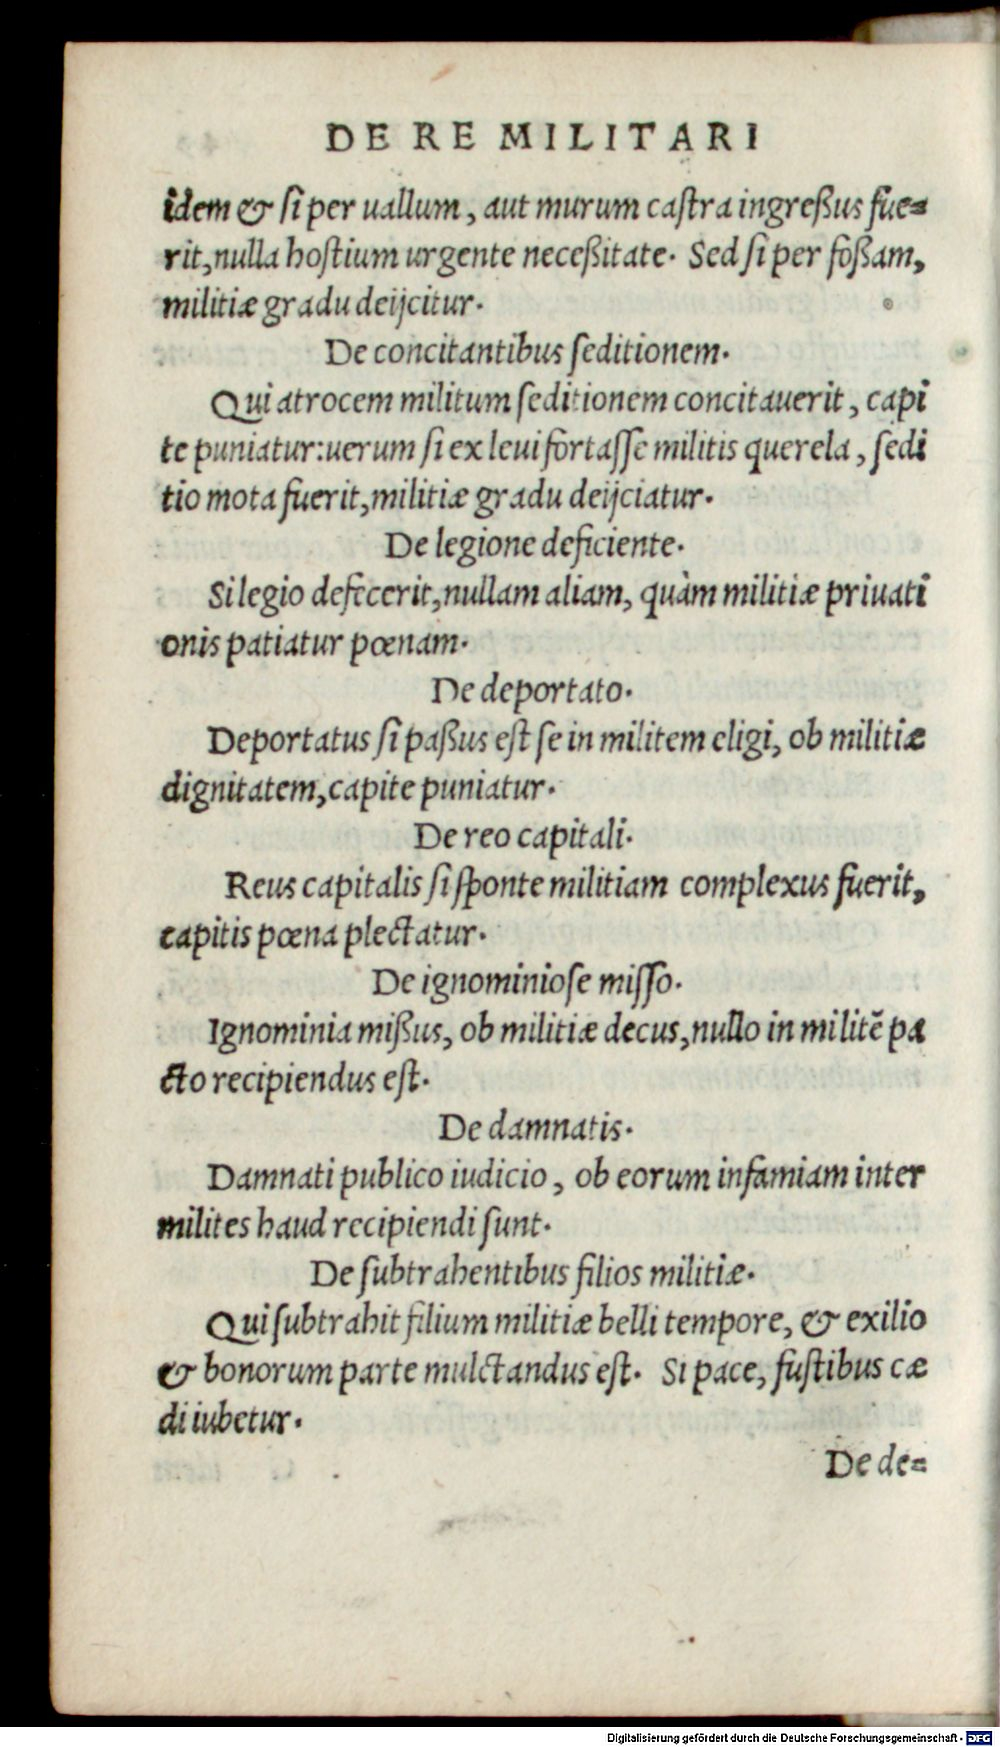 DE RE MILITARI
idem & si per uallum, aut murum castra ingreßus fue=
rit, nulla hostium urgente neceßitate. Sed si per foßam,
militiæ gradu deijcitur.
De concitantibus seditionem.
Qui atrocem militum seditionem concitauerit, capi
te puniatur: uerum si ex leui fortasse militis querela, sedi
tio mota fuerit, militiæ gradu deijciatur.
De legione deficiente.
Si legio defecerit, nullam aliam, quàm militiæ priuati
onis patiatur pœnam.
De deportato.
Deportatus si paßus est se in militem eligi, ob militiæ
dignitatem, capite puniatur.
De reo capitali.
Reus capitalis si sponte militiam complexus fuerit,
capitis pœna plectatur.
De ignominiose misso.
Ignominia mißus, ob militiæ decus, nullo in militē pa
cto recipiendus est.
De damnatis.
Damnati publico iudicio, ob eorum infamiam inter
milites haud recipiendi sunt.
De subtrahentibus filios militiæ.
Qui subtrahit filium militiæ belli tempore, & exilio
& bonorum parte mulctandus est. Si pace, fustibus cæ
di iubetur.
De de=
Digitalisierung gefördert durch die Deutsche Forschungsgemeinschaft - DFG